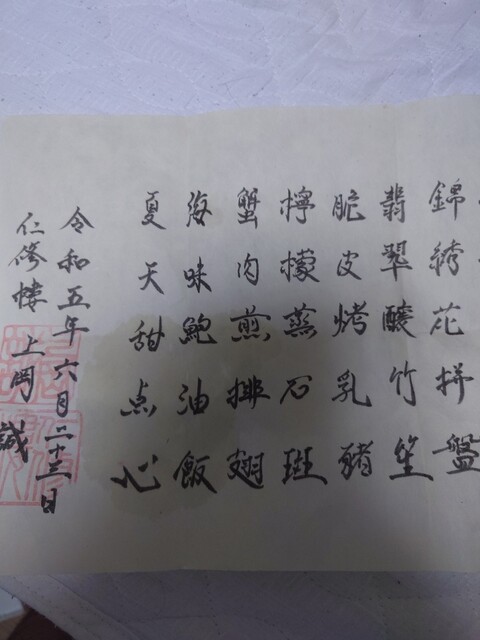 錦绣花拼盤
翡翠釀竹笙
脆皮烤乳豬
檸檬蒸石斑
蟹肉煎排翅
海味鮑油飯
夏天甜点心
令和五年六月二十三日
仁修樓 上岡 誠